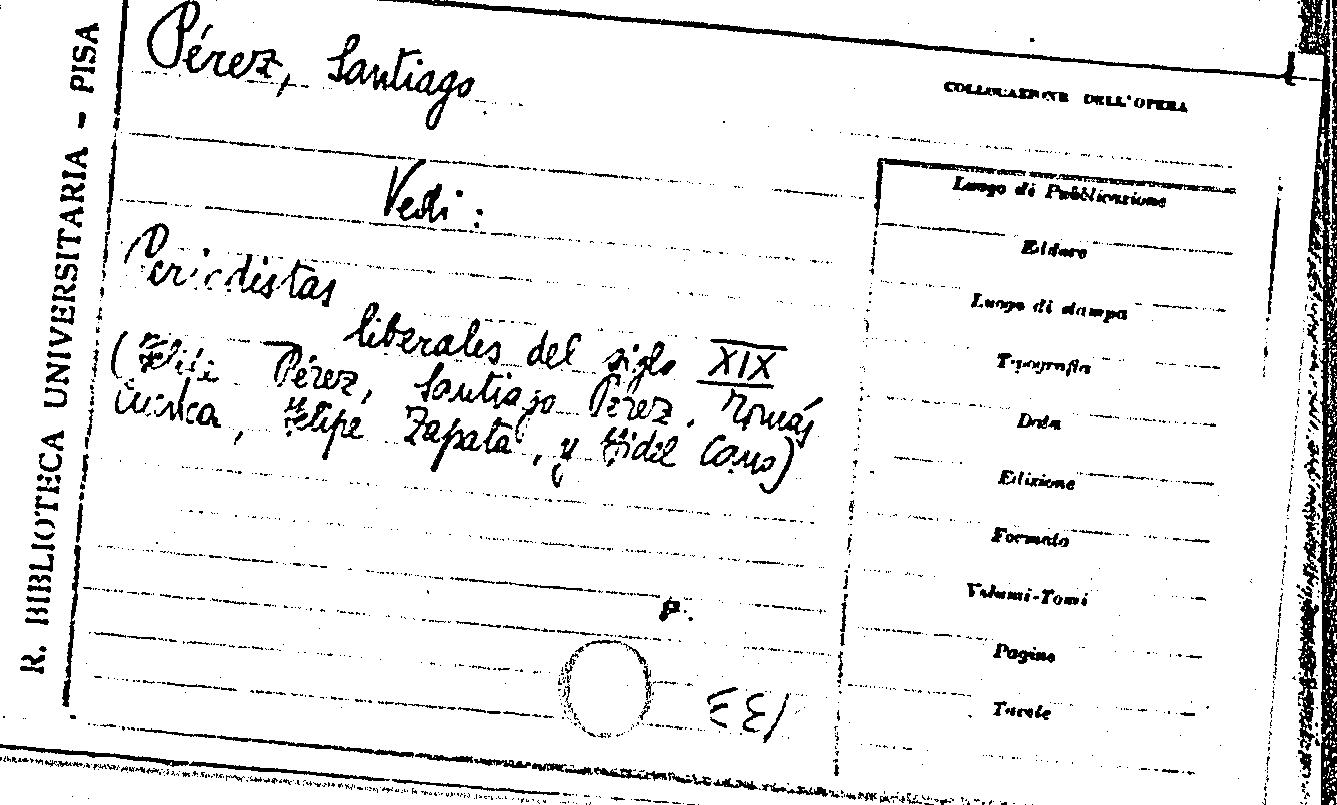 R. BIBLIOTECA UNIVERSITARIA - PISA
Pérez, Santiago
Vedi:
Periodistas
liberales del siglo XIX
(Felipe Pérez, Santiago Pérez, Tomás
Cuenca, Felipe Zapata, y Fidel Cano)
P.
COLLOCAZIONE DELL'OPERA
Luogo di Pubblicazione
Editore
Luogo di stampa
Tipografia
Data
Edizione
Formato
Volumi-Tomi
Pagine
Tavole